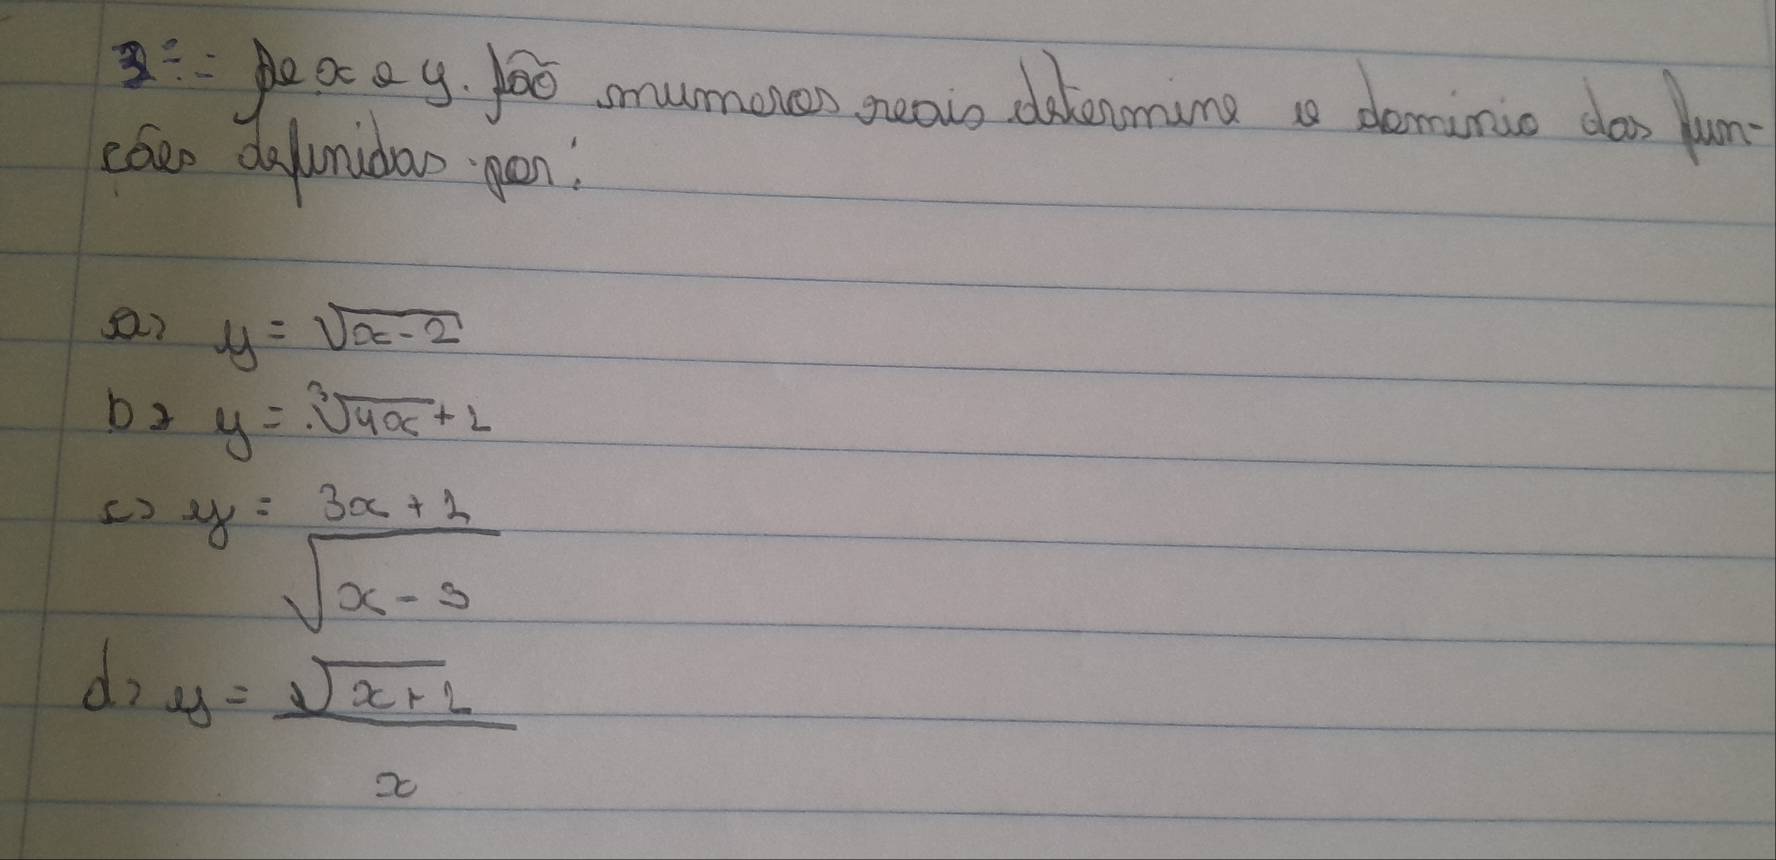 3÷- Se x e y. São numeros reais determine o dominio das fun-
ções definidas por:
a> y = √x-2
b> y = ∛4x + 1
c> y = 3x + 1
√x - 3
d> y = √x+1
x